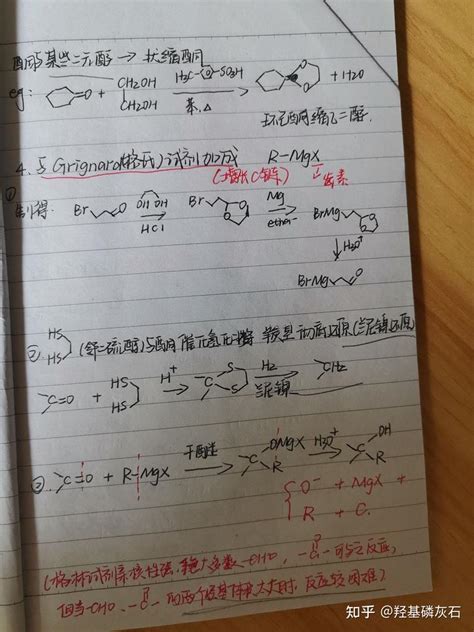 酮与某些二元醇 → 状缩酮
eg: O + CH₂OH CH₂OH H₃C SO₃H 苯, △ + H₂O
环己酮缩乙二醇
4. 与Grignard(格氏)试剂加成 R-MgX
(增长C链) 卤素
① 制得: Br O OH OH HCl Br O O Mg ether BrMg O O
H₃O⁺
BrMg O
② HS HS (乙二硫醇)与酮
C=O + HS HS H⁺ C S S H₂ 兰尼镍 CH₂
③ C=O + R-MgX 干醚 C OMgX R H₃O⁺ C OH R
O⁻ + MgX +
R + C.
(格林试剂亲核性强, 绝大多数-CHO, -C- O 可与之反应,
但当-CHO, -C- O 的两个烃基体积太大时, 反应较困难)
知乎 @羟基磷灰石